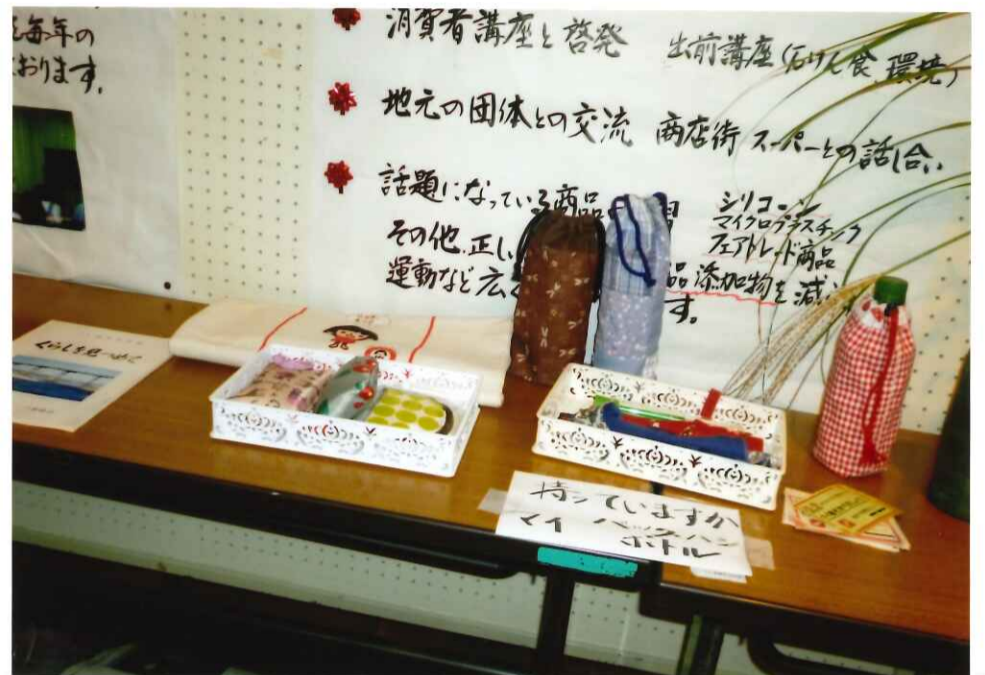 毎年の
おります。
消費者講座と啓発 出前講座(石けん、食、環境)
地元の団体との交流 商店街 スーパーとの話し合い
話題になっている商品の
シリコーン
マイクロプラスチック
フェアトレード商品
その他、正し
運動など広く
品添加物を減
す。
くらしを見つめて
持っていますか
マイ バッグ・ハシ
ボトル